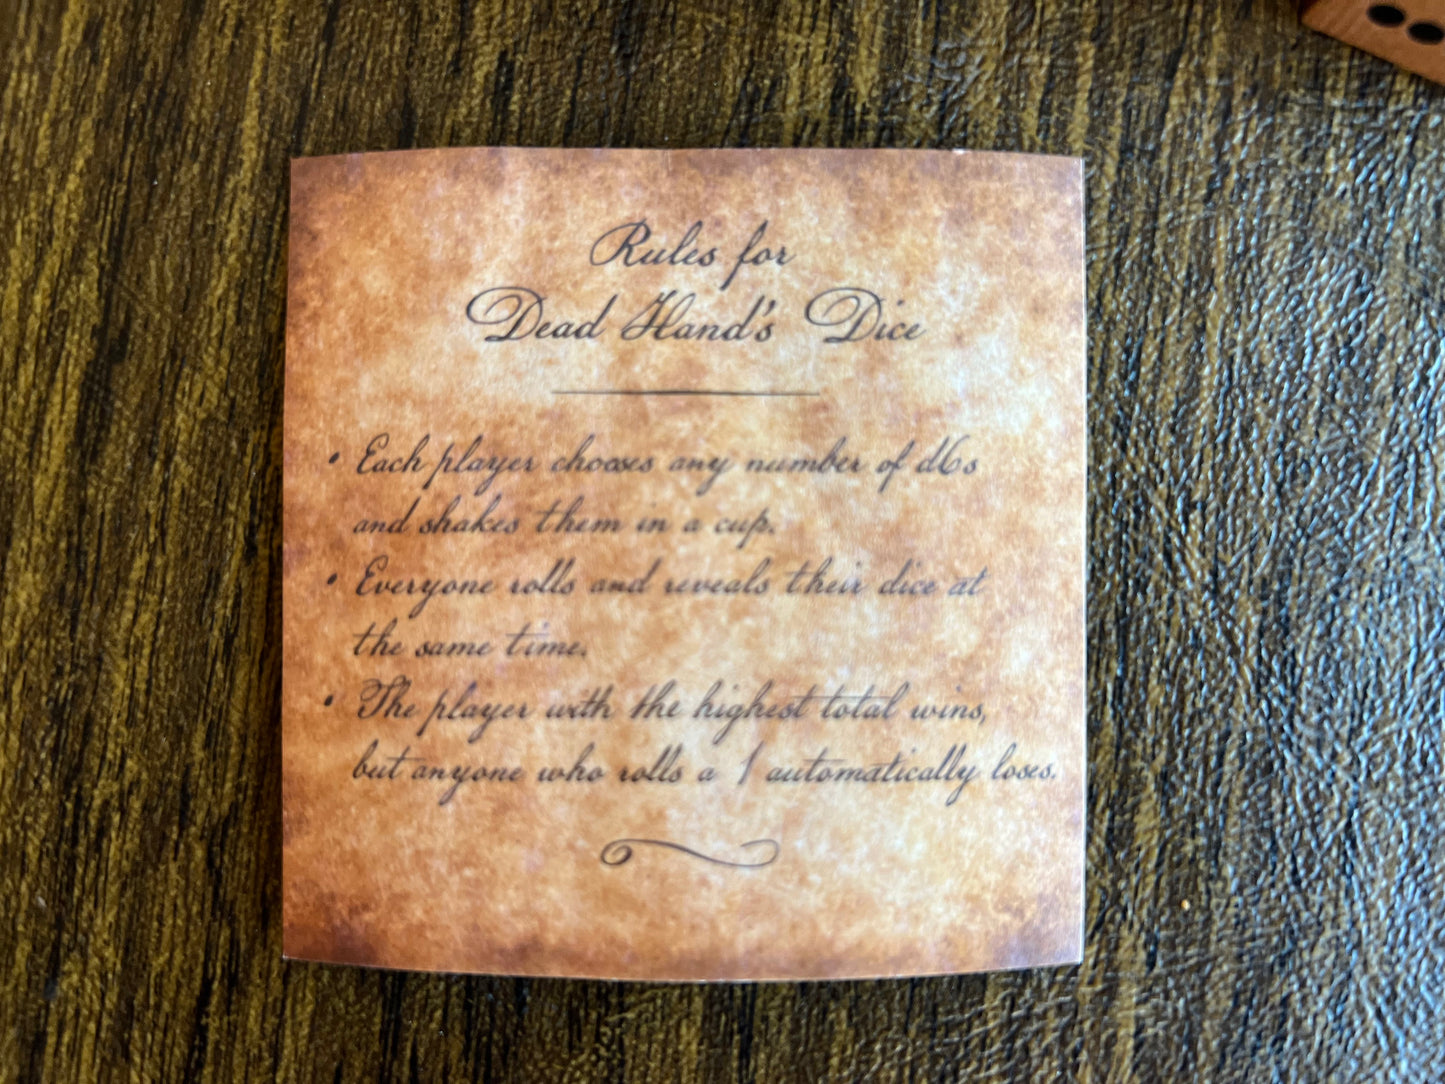 Rules for
Dead Hand's Dice
• Each player chooses any number of d6s
and shakes them in a cup.
• Everyone rolls and reveals their dice at
the same time.
• The player with the highest total wins,
but anyone who rolls a 1 automatically loses.